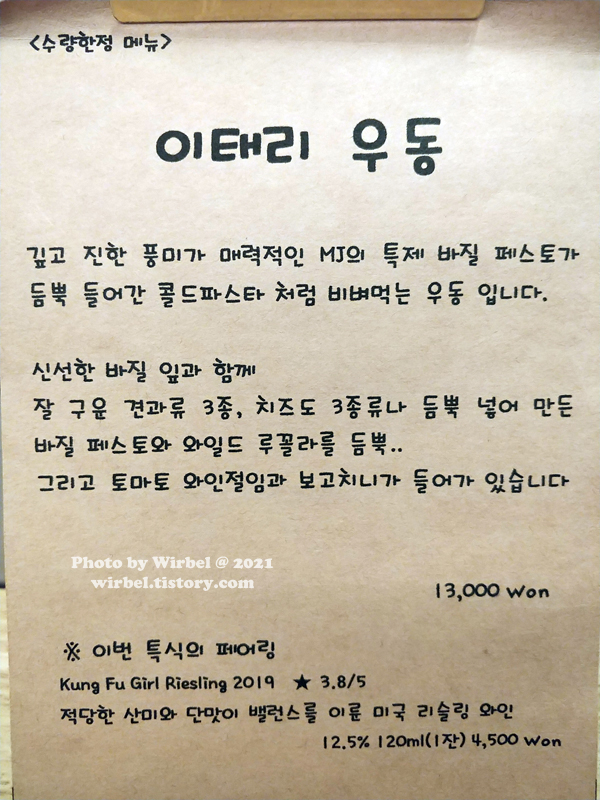 <수량한정 메뉴>
이태리 우동
깊고 진한 풍미가 매력적인 MJ의 특제 바질 페스토가
듬뿍 들어간 콜드파스타 처럼 비벼먹는 우동 입니다.
신선한 바질 잎과 함께
잘 구운 견과류 3종, 치즈도 3종류나 듬뿍 넣어 만든
바질 페스토와 와일드 루꼴라를 듬뿍..
그리고 토마토 와인절임과 보고치니가 들어가 있습니다
Photo by Wirbel @ 2021
wirbel.tistory.com
13,000 Won
※ 이번 특식의 페어링
Kung Fu Girl Riesling 2019 ★ 3.8/5
적당한 산미와 단맛이 밸런스를 이룬 미국 리슬링 와인
12.5% 120ml(1잔) 4,500 Won